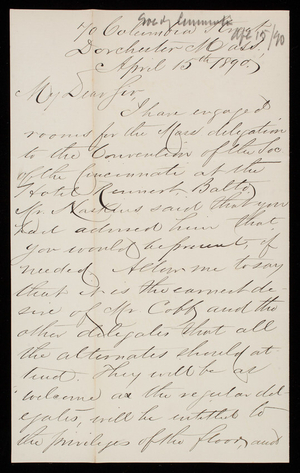 70 Columbia Street
Soc of Cincinnati
Apl 15/90
Dorchester Mass,
April 15th 1890.
My Dear Sir,
I have engaged
rooms for the Mass delegation
to the Convention of the Soc
of the Cincinnati at the
Hotel Rennert Balto.
Mr Haskins said that you
had advised him that
you would be present, if
needed. Allow me to say
that it is the earnest de-
sire of Mr Cobb and the
other delegates that all
the alternates should at-
tend. They will be as
welcome as the regular del-
egates, will be entitled to
the privileges of the floor, and